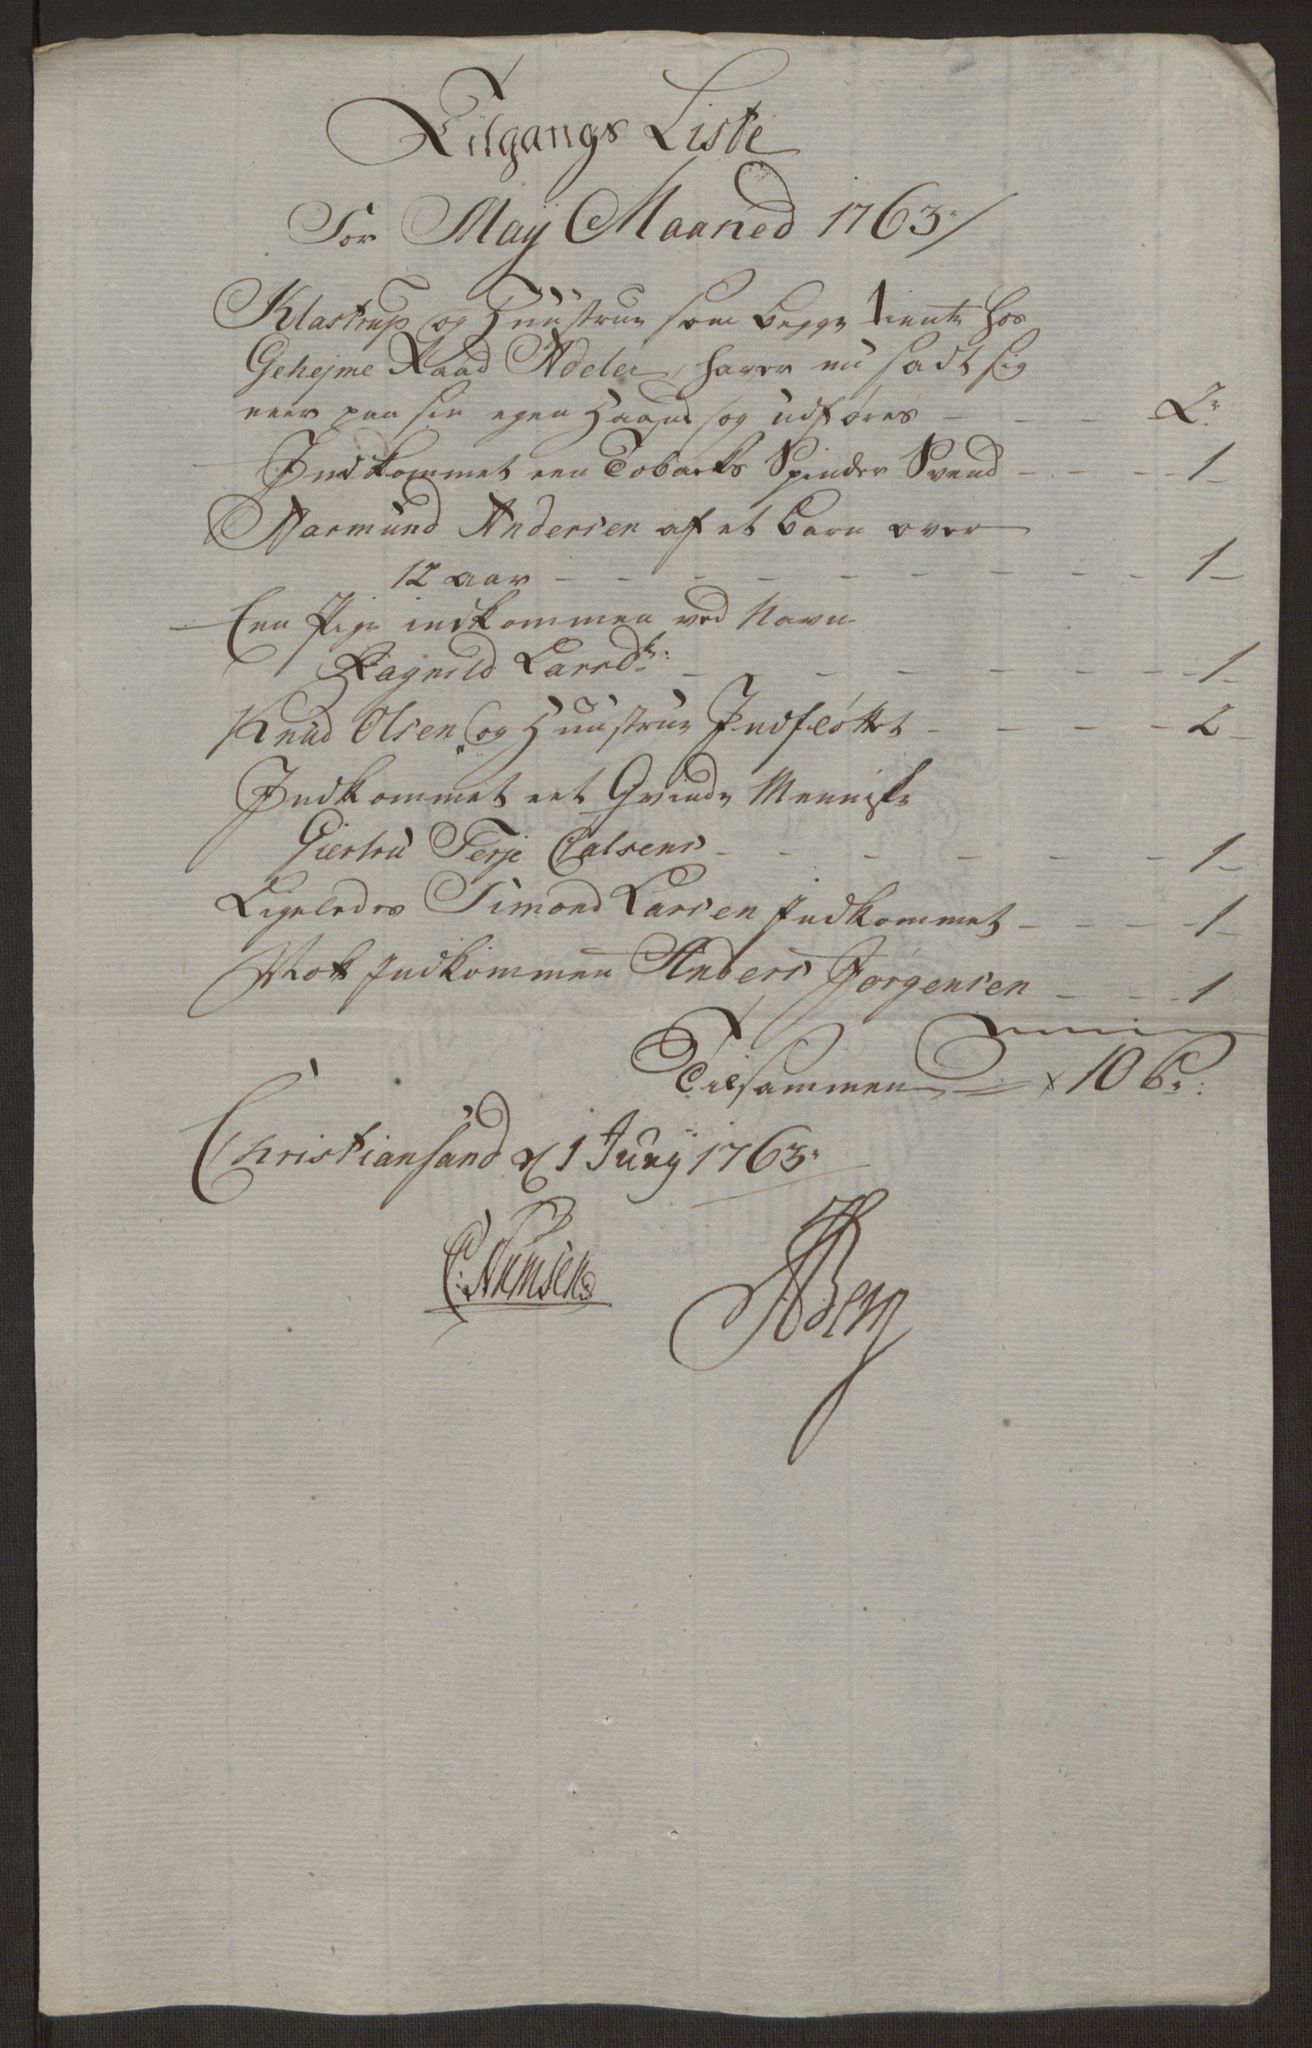 Tilgangs Liste
For Maij Maaned 1763
Klastrup og Huustrue som begge tiente hos
Gehejme Raad Adeler, haver nu sadt sig
neer paa sin egen Haand og udføres - - - 2
Indkommet een Tobacks Spinder Svend - - - - 1
Aarmund Andersen af et barn over
12 aar - - - - - - - - - 1
Een Pige indkommen ved Navn
Ragnild Larsd - - - - - - - 1
Knud Olsen og Huustrue Indfløttet - - - - 2
Indkommet eet Qvinde Menniske
Giertru Terje Calsens - - - - - - 1
Ligeledes Simond Larsen Indkommet - - - - 1
Nok Indkommen Anders Jørgensen - - - 1
Tilsammen 10
Christiansand d 1 Juny 1763
ABerg